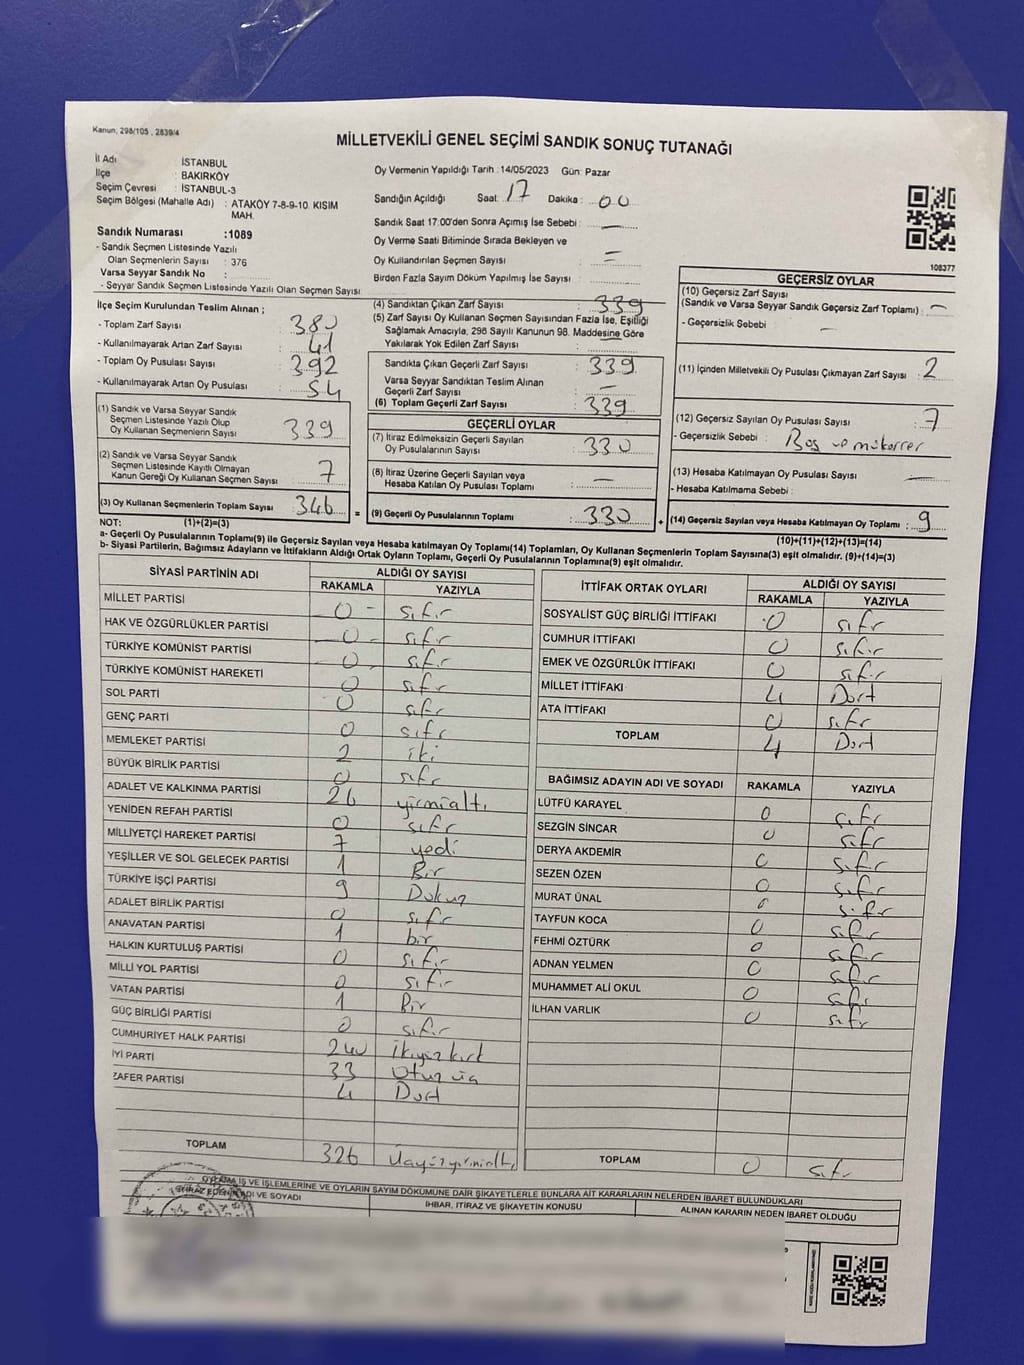 Kanun; 298/105 , 2839/4
MİLLETVEKİLİ GENEL SEÇİMİ SANDIK SONUÇ TUTANAĞI
İl Adı : İSTANBUL
İlçe : BAKIRKÖY
Seçim Çevresi : İSTANBUL-3
Seçim Bölgesi (Mahalle Adı) : ATAKÖY 7-8-9-10. KISIM MAH.
Sandık Numarası :1089
- Sandık Seçmen Listesinde Yazılı
Olan Seçmenlerin Sayısı : 376
Varsa Seyyar Sandık No :
- Seyyar Sandık Seçmen Listesinde Yazılı Olan Seçmen Sayısı:
Oy Vermenin Yapıldığı Tarih : 14/05/2023 Gün: Pazar
Sandığın Açıldığı Saat: 17 Dakika : 00
Sandık Saat 17:00'den Sonra Açımış İse Sebebi : —
Oy Verme Saati Bitiminde Sırada Bekleyen ve
Oy Kullandırılan Seçmen Sayısı : =
Birden Fazla Sayım Döküm Yapılmış İse Sayısı :
108377
İlçe Seçim Kurulundan Teslim Alınan ;
- Toplam Zarf Sayısı : 380
- Kullanılmayarak Artan Zarf Sayısı : 41
- Toplam Oy Pusulası Sayısı : 392
- Kullanılmayarak Artan Oy Pusulası : 54
(1) Sandık ve Varsa Seyyar Sandık
Seçmen Listesinde Yazılı Olup
Oy Kullanan Seçmenlerin Sayısı : 339
(2) Sandık ve Varsa Seyyar Sandık
Seçmen Listesinde Kayıtlı Olmayan
Kanun Gereği Oy Kullanan Seçmen Sayısı : 7
(3) Oy Kullanan Seçmenlerin Toplam Sayısı : 346 =
(4) Sandıktan Çıkan Zarf Sayısı : 339
(5) Zarf Sayısı Oy Kullanan Seçmen Sayısından Fazla İse, Eşitliği
Sağlamak Amacıyla, 298 Sayılı Kanunun 98. Maddesine Göre
Yakılarak Yok Edilen Zarf Sayısı :
Sandıkta Çıkan Geçerli Zarf Sayısı : 339
Varsa Seyyar Sandıktan Teslim Alınan
Geçerli Zarf Sayısı : —
(6) Toplam Geçerli Zarf Sayısı : 339
GEÇERLİ OYLAR
(7) İtiraz Edilmeksizin Geçerli Sayılan
Oy Pusulalarının Sayısı : 330
(8) İtiraz Üzerine Geçerli Sayılan veya
Hesaba Katılan Oy Pusulası Toplamı : —
(9) Geçerli Oy Pusulalarının Toplamı : 330 +
GEÇERSİZ OYLAR
(10) Geçersiz Zarf Sayısı
(Sandık ve Varsa Seyyar Sandık Geçersiz Zarf Toplamı) : —
- Geçersizlik Sebebi : —
(11) İçinden Milletvekili Oy Pusulası Çıkmayan Zarf Sayısı : 2
(12) Geçersiz Sayılan Oy Pusulası Sayısı : 7
- Geçersizlik Sebebi : Boş ve mükerrer
(13) Hesaba Katılmayan Oy Pusulası Sayısı : —
- Hesaba Katılmama Sebebi :
(14) Geçersiz Sayılan veya Hesaba Katılmayan Oy Toplamı : 9
NOT: (1)+(2)=(3) (10)+(11)+(12)+(13)=(14)
a- Geçerli Oy Pusulalarının Toplamı(9) ile Geçersiz Sayılan veya Hesaba katılmayan Oy Toplamı(14) Toplamları, Oy Kullanan Seçmenlerin Toplam Sayısına(3) eşit olmalıdır. (9)+(14)=(3)
b- Siyasi Partilerin, Bağımsız Adayların ve İttifakların Aldığı Ortak Oyların Toplamı, Geçerli Oy Pusulalarının Toplamına(9) eşit olmalıdır.
SİYASİ PARTİNİN ADI ALDIĞI OY SAYISI
RAKAMLA YAZIYLA
MİLLET PARTİSİ 0 - sıfır
HAK VE ÖZGÜRLÜKLER PARTİSİ 0 - sıfır
TÜRKİYE KOMÜNİST PARTİSİ 0 - sıfır
TÜRKİYE KOMÜNİST HAREKETİ 0 sıfır
SOL PARTİ 0 sıfır
GENÇ PARTİ 0 sıfır
MEMLEKET PARTİSİ 2 iki
BÜYÜK BİRLİK PARTİSİ 0 sıfır
ADALET VE KALKINMA PARTİSİ 26 yirmialtı
YENİDEN REFAH PARTİSİ 0 sıfır
MİLLİYETÇİ HAREKET PARTİSİ 7 yedi
YEŞİLLER VE SOL GELECEK PARTİSİ 1 Bir
TÜRKİYE İŞÇİ PARTİSİ 9 Dokuz
ADALET BİRLİK PARTİSİ 0 sıfır
ANAVATAN PARTİSİ 1 bir
HALKIN KURTULUŞ PARTİSİ 0 sıfır
MİLLİ YOL PARTİSİ 0 sıfır
VATAN PARTİSİ 1 Bir
GÜÇ BİRLİĞİ PARTİSİ 0 sıfır
CUMHURİYET HALK PARTİSİ 240 ikiyüzkırk
İYİ PARTİ 33 otuzüç
ZAFER PARTİSİ 4 Dört
TOPLAM 326 üçyüzyirmialtı
İTTİFAK ORTAK OYLARI ALDIĞI OY SAYISI
RAKAMLA YAZIYLA
SOSYALİST GÜÇ BİRLİĞİ İTTİFAKI 0 sıfır
CUMHUR İTTİFAKI 0 sıfır
EMEK VE ÖZGÜRLÜK İTTİFAKI 0 sıfır
MİLLET İTTİFAKI 4 Dört
ATA İTTİFAKI 0 sıfır
TOPLAM 4 Dört
BAĞIMSIZ ADAYIN ADI VE SOYADI RAKAMLA YAZIYLA
LÜTFÜ KARAYEL 0 sıfır
SEZGİN SİNCAR 0 sıfır
DERYA AKDEMİR 0 sıfır
SEZEN ÖZEN 0 sıfır
MURAT ÜNAL 0 sıfır
TAYFUN KOCA 0 sıfır
FEHMİ ÖZTÜRK 0 sıfır
ADNAN YELMEN 0 sıfır
MUHAMMET ALİ OKUL 0 sıfır
İLHAN VARLIK 0 sıfır
TOPLAM 0 sıfır
OYLAMA İŞ VE İŞLEMLERİNE VE OYLARIN SAYIM DÖKÜMÜNE DAİR ŞİKAYETLERLE BUNLARA AİT KARARLARIN NELERDEN İBARET BULUNDUKLARI
İTİRAZ EDENİN ADI VE SOYADI
İHBAR, İTİRAZ VE ŞİKAYETİN KONUSU
ALINAN KARARIN NEDEN İBARET OLDUĞU